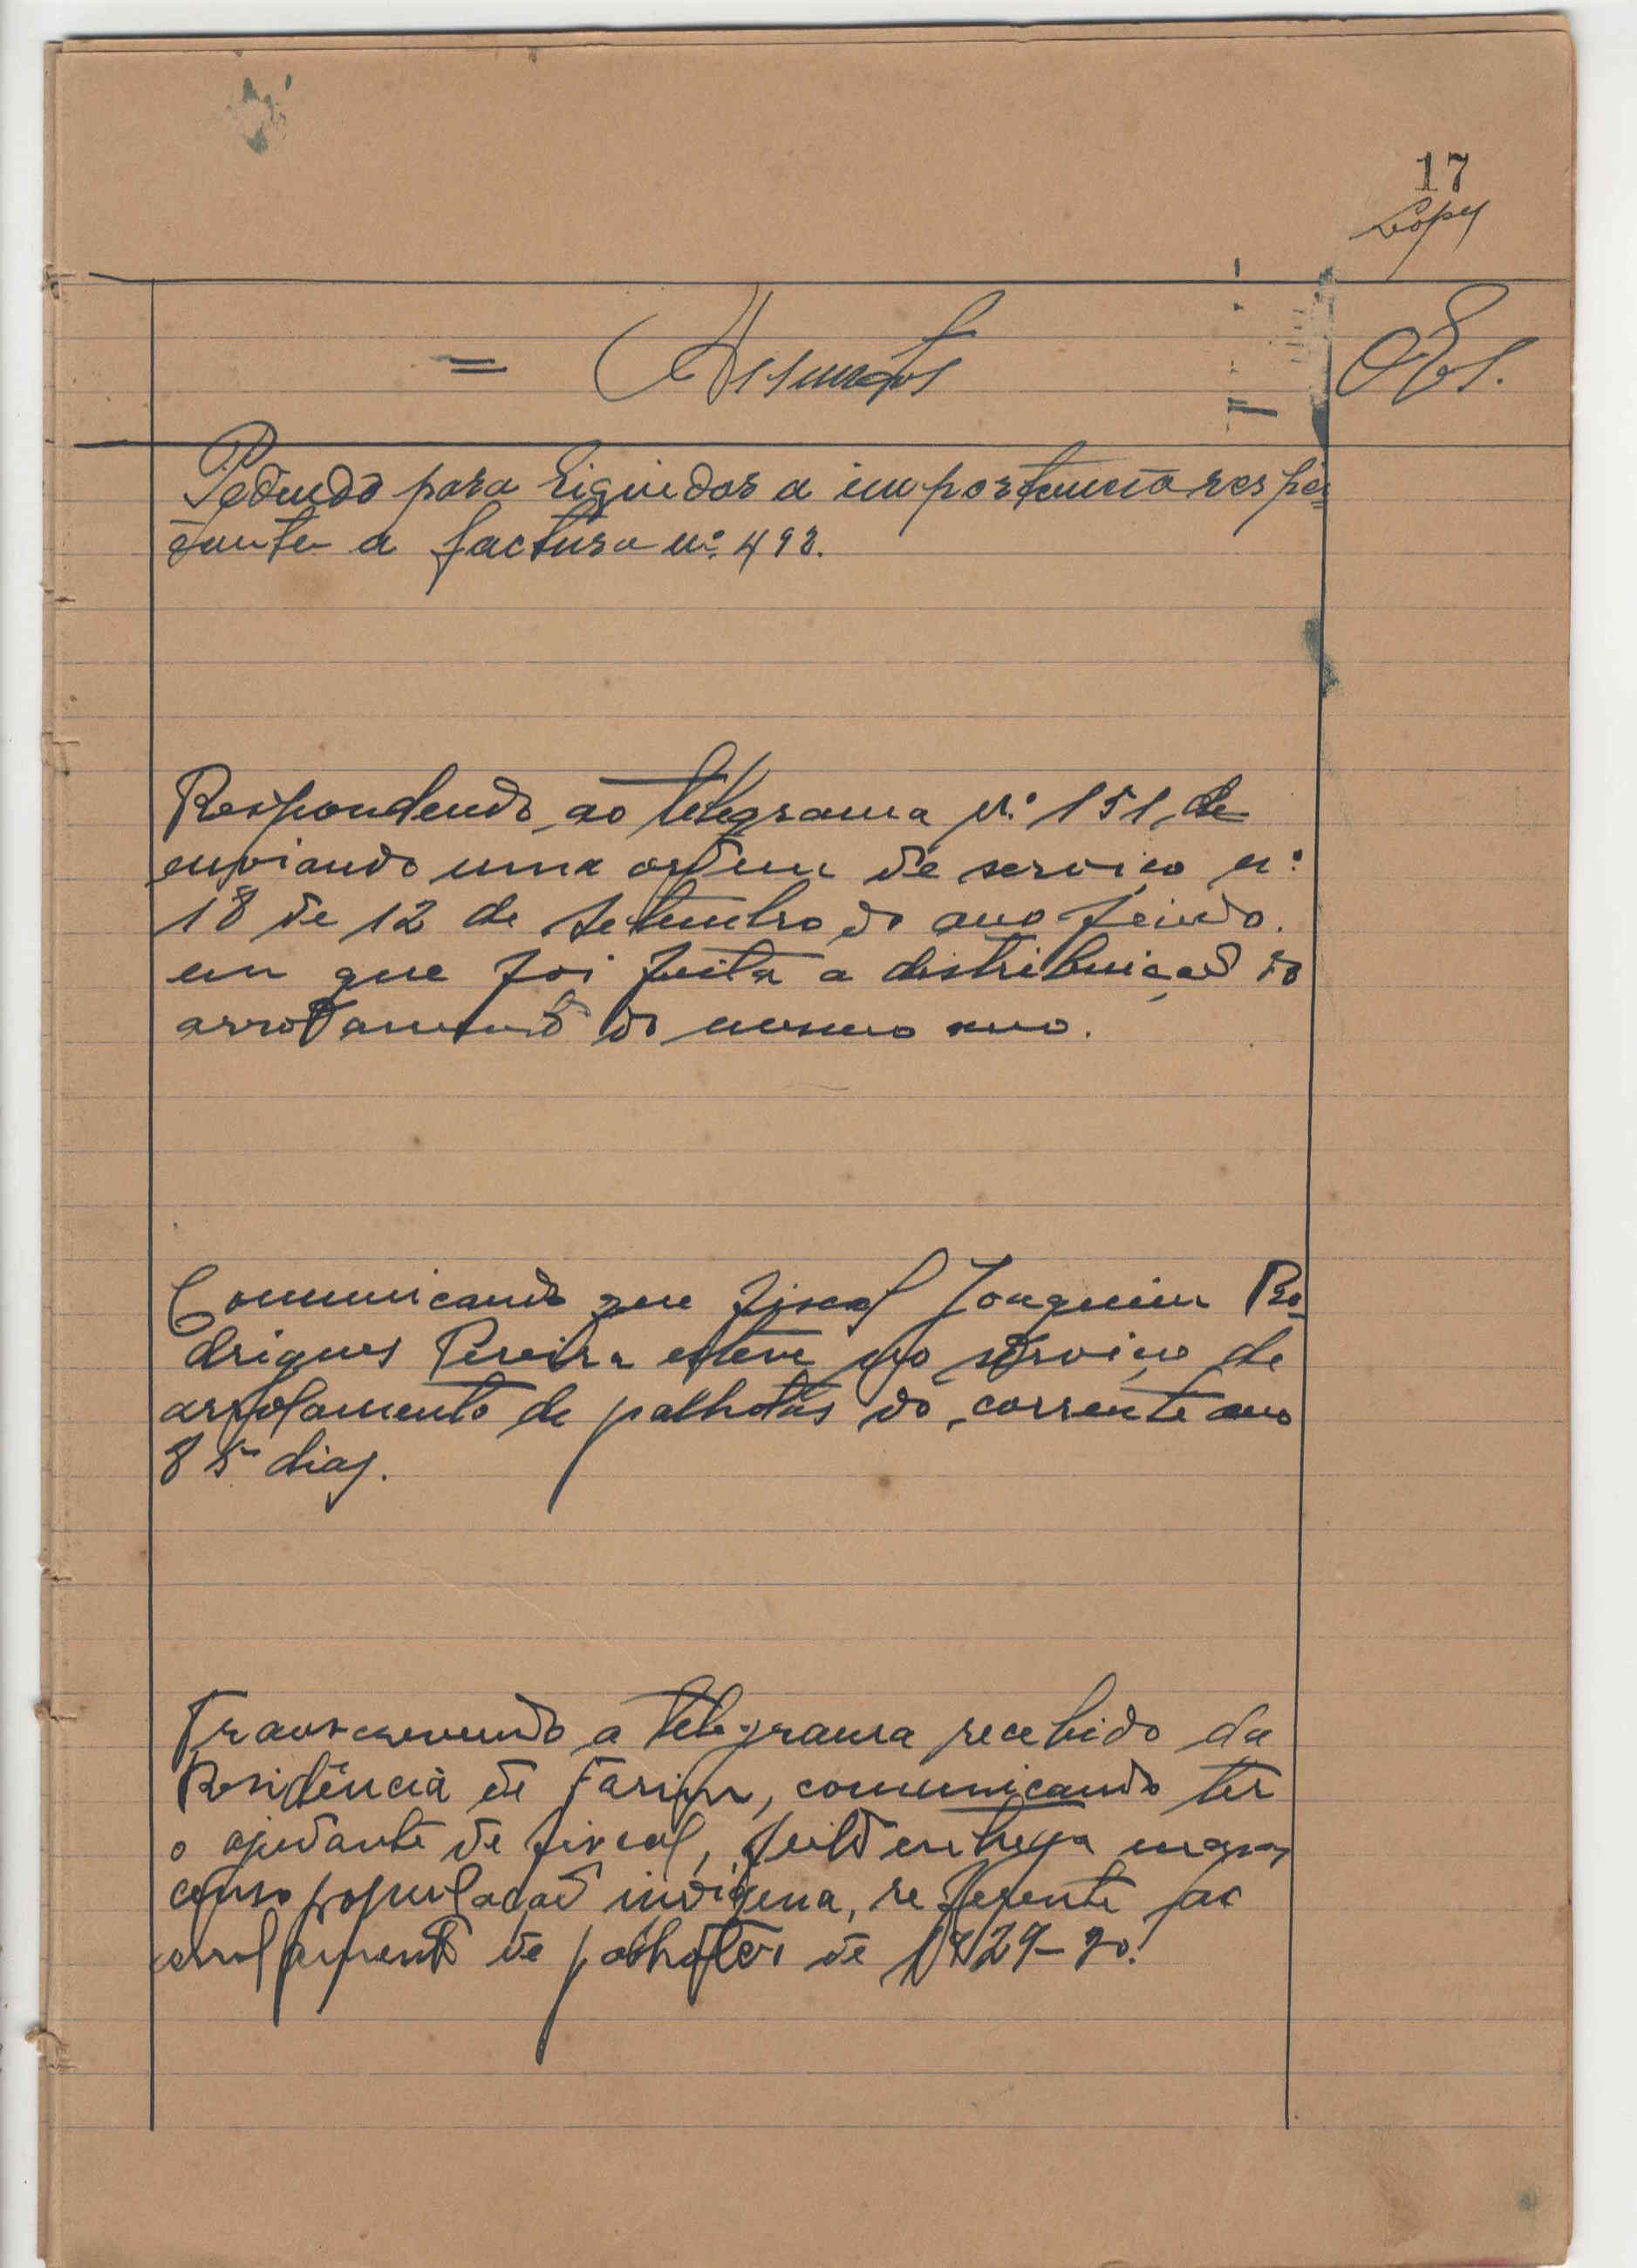 17
Lopes
= Assuntos
Obs.
Pedindo para liquidar a importancia respei=
tante a factura n.º 493.
Respondendo ao telegrama n.º 151, de
enviando uma ordem de serviço n.º
18 de 12 de setembro do ano findo.
em que foi feita a distribuição do
arrolamento do mesmo ano.
Comunicando que fiscal Joaquim Ro-
drigues Pereira esteve no serviço de
arrolamento de palhotas do corrente ano
85 dias.
Transcrevendo a telegrama recebido da
Residência de Farim, comunicando ter
o ajudante de fiscal, feito entrega
censo população indígena, referente ao
arrolamento de palhotas de 1929-30.